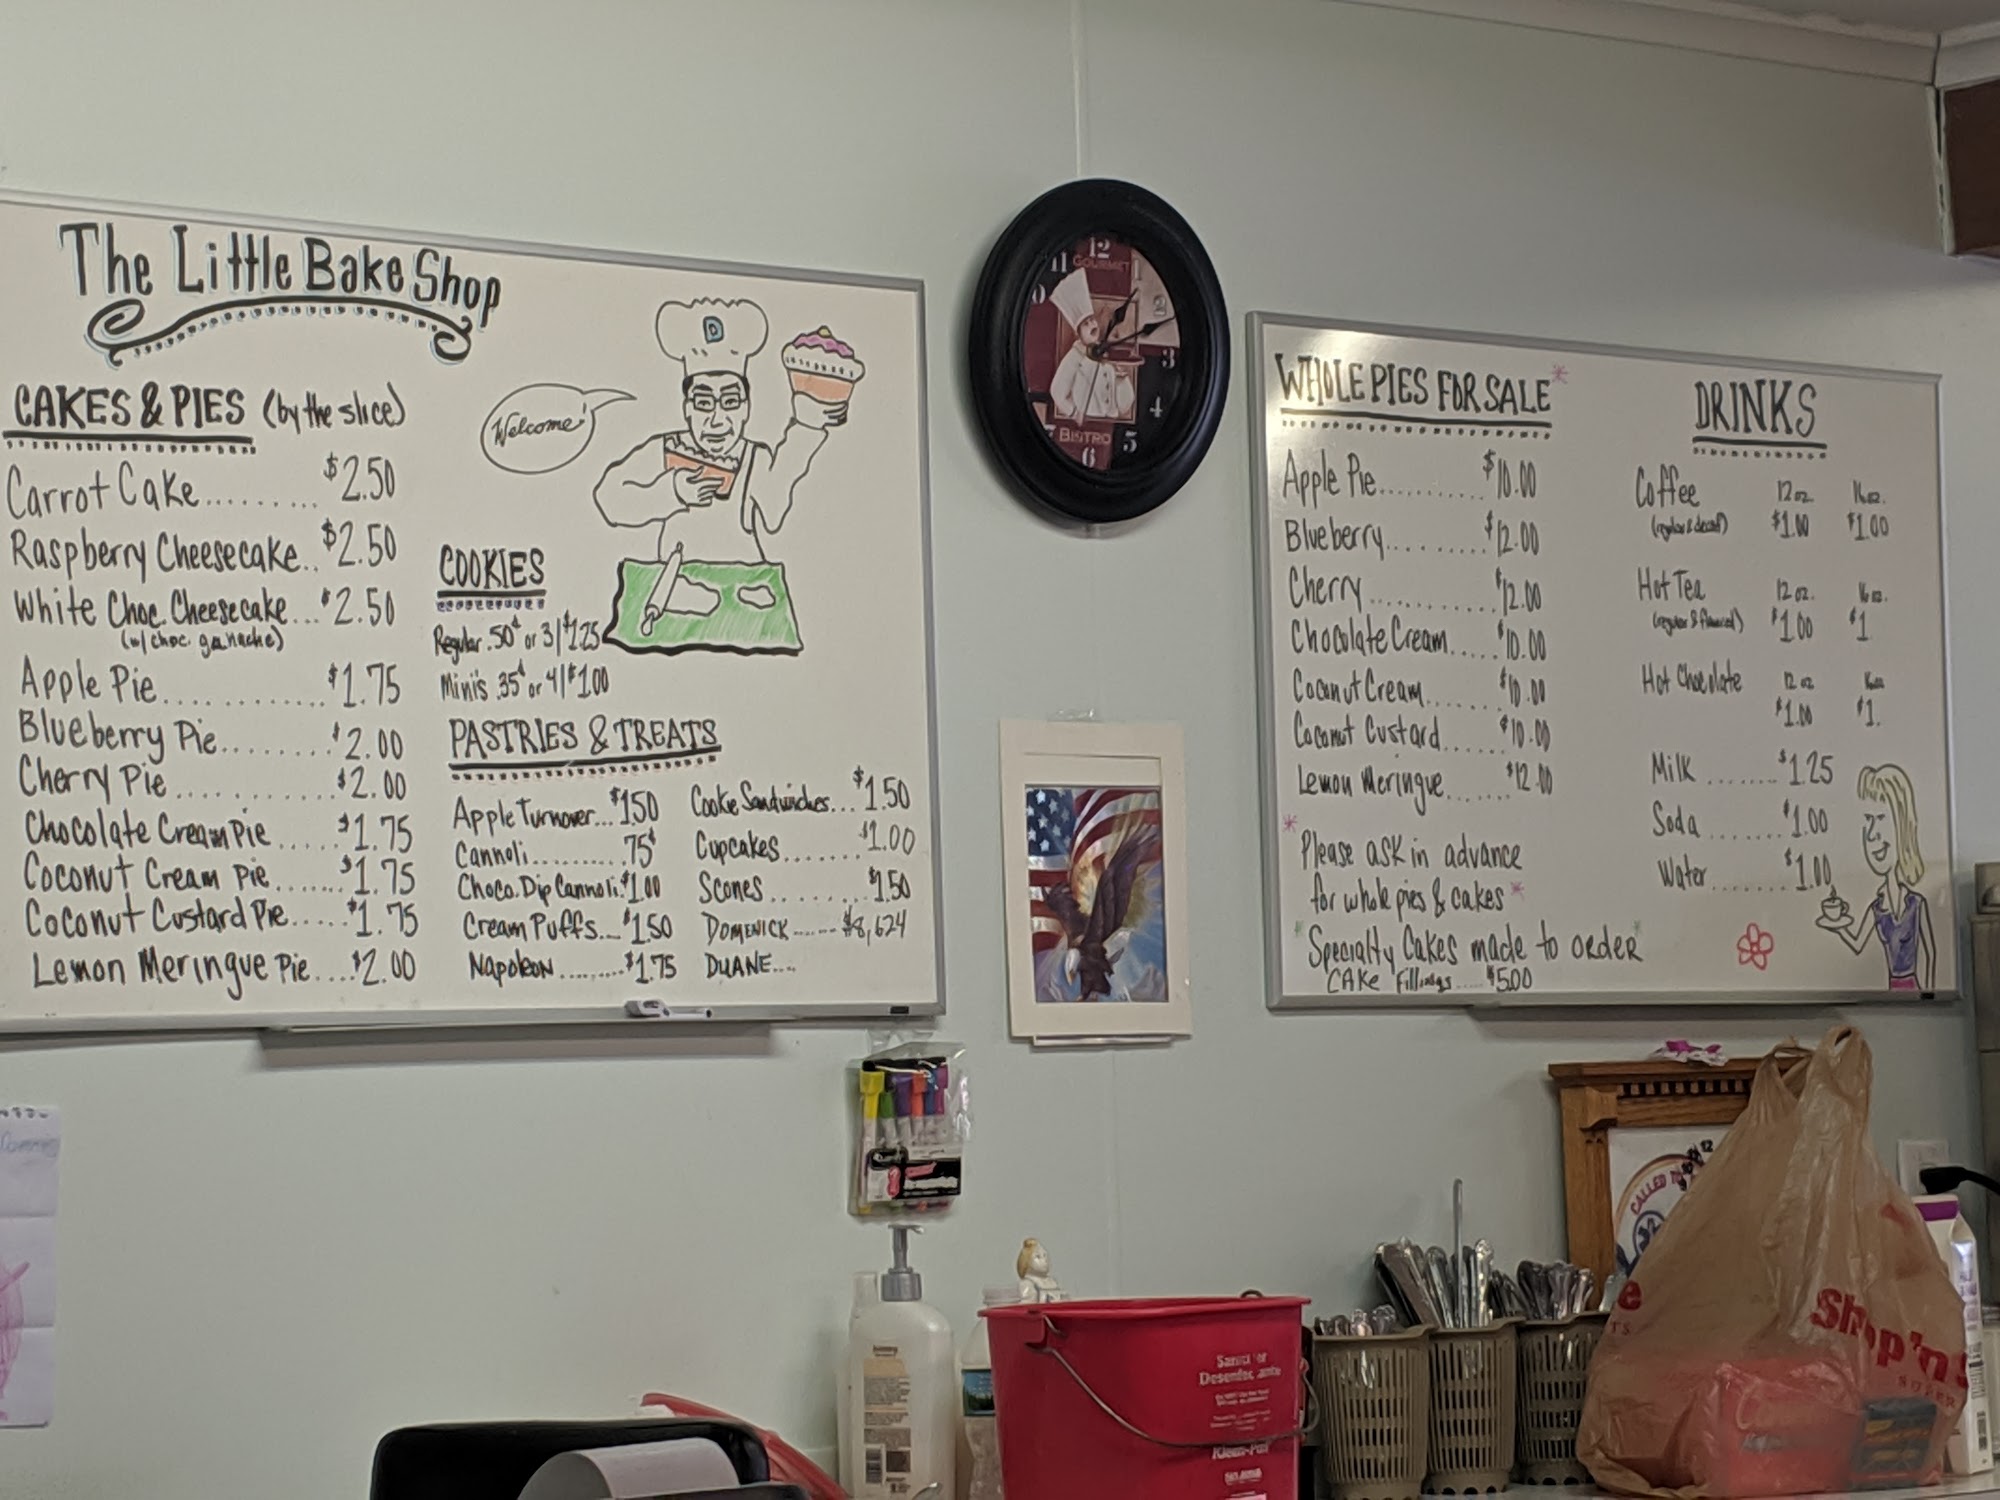 The Little Bake Shop
CAKES & PIES (by the slice)
Carrot Cake......... $2.50
Raspberry Cheesecake.. $2.50
White Choc. Cheesecake... $2.50
(w/ choc. ganache)
Apple Pie............. $1.75
Blueberry Pie........ $2.00
Cherry Pie............ $2.00
Chocolate Cream Pie..... $1.75
Coconut Cream Pie....... $1.75
Coconut Custard Pie..... $1.75
Lemon Meringue Pie.... $2.00
Welcome!
D
COOKIES
Regular .50¢ or 3/$1.25
Mini's .35¢ or 4/$1.00
PASTRIES & TREATS
Apple Turnover... $1.50
Cannoli.......... .75¢
Choco. Dip Cannoli. $1.00
Cream Puffs.... $1.50
Napoleon......... $1.75
Cookie Sandwiches... $1.50
Cupcakes....... $1.00
Scones......... $1.50
DOMENICK...... $8,624
DUANE....
12
11
1
2
3
4
5
6
7
GOURMET
BISTRO
WHOLE PIES FOR SALE*
Apple Pie.......... $10.00
Blueberry......... $12.00
Cherry............ $12.00
Chocolate Cream..... $10.00
Coconut Cream....... $10.00
Coconut Custard...... $10.00
Lemon Meringue....... $12.00
* Please ask in advance
for whole pies & cakes *
* Specialty Cakes made to order *
CAKE Fillings..... $5.00
DRINKS
Coffee 12oz. 16oz.
(regular & decaf) $1.00 $1.00
Hot Tea 12oz. 16oz.
(regular & flavored) $1.00 $1.
Hot Chocolate 12oz 16oz
$1.00 $1.
Milk ....... $1.25
Soda ....... $1.00
Water ....... $1.00
CALLED TO
Kleen-Pail
Shop'n